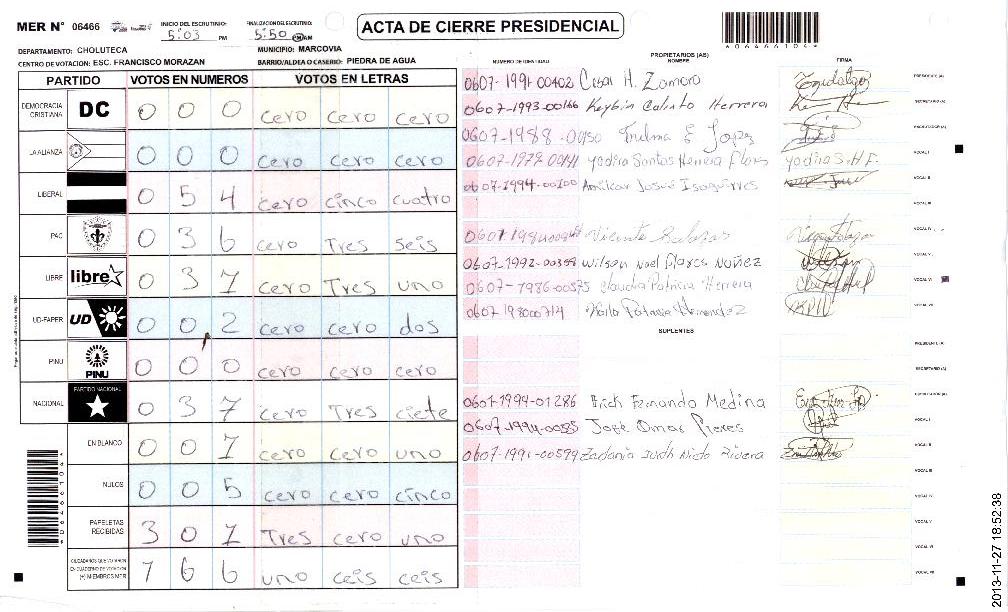 MER N° 06466
INICIO DEL ESCRUTINIO:
5:03 PM
FINALIZACION DEL ESCRUTINIO:
5:50 PM/AM
ACTA DE CIERRE PRESIDENCIAL
DEPARTAMENTO: CHOLUTECA
MUNICIPIO: MARCOVIA
CENTRO DE VOTACION: ESC. FRANCISCO MORAZAN
BARRIO/ALDEA O CASERIO: PIEDRA DE AGUA
PARTIDO VOTOS EN NUMEROS VOTOS EN LETRAS
DEMOCRACIA CRISTIANA DC 0 0 0 cero cero cero
LA ALIANZA 0 0 0 cero cero cero
LIBERAL 0 5 4 cero cinco cuatro
PAC 0 3 6 cero Tres seis
LIBRE libre 0 3 1 cero Tres uno
UD-FAPER UD 0 0 2 cero cero dos
PINU PINU 0 0 0 cero cero cero
NACIONAL PARTIDO NACIONAL 0 3 7 cero Tres ciete
EN BLANCO 0 0 1 cero cero uno
NULOS 0 0 5 cero cero cinco
PAPELETAS RECIBIDAS 3 0 1 Tres cero uno
CIUDADANOS QUE VOTARON EN CUADERNO DE VOTACION (+) MIEMBROS MER 1 6 6 uno ceis ceis
PROPIETARIOS (AS)
NUMERO DE IDENTIDAD NOMBRE FIRMA
0607-1991-00402 Cesar H. Zamora PRESIDENTE (A)
0607-1993-00166 Keybin Calixto Herrera SECRETARIO (A)
0607-1988- Telma E Lopez ESCRUTADOR (A)
Yadira Santos Herrera Flores Yadira S.H F. VOCAL I
0607-1994-00100 Amilcar Josue VOCAL II
VOCAL III
Vicente VOCAL IV
0607-1992-00359 Wilson Noel Flores Nuñez VOCAL V
0607-1986-00575 Claudia Patricia Herrera VOCAL VI
0607 198000714 Hernandez VOCAL VII
SUPLENTES
PRESIDENTE (A)
SECRETARIO (A)
0607-1994-01286 Erick Fernando Medina ESCRUTADOR (A)
0607-1994-0085 José Omar VOCAL I
0607-1991-00599 Zadania Judith Nieto Rivera VOCAL II
VOCAL III
VOCAL IV
VOCAL V
VOCAL VI
VOCAL VII
2013-11-27 18:52:38